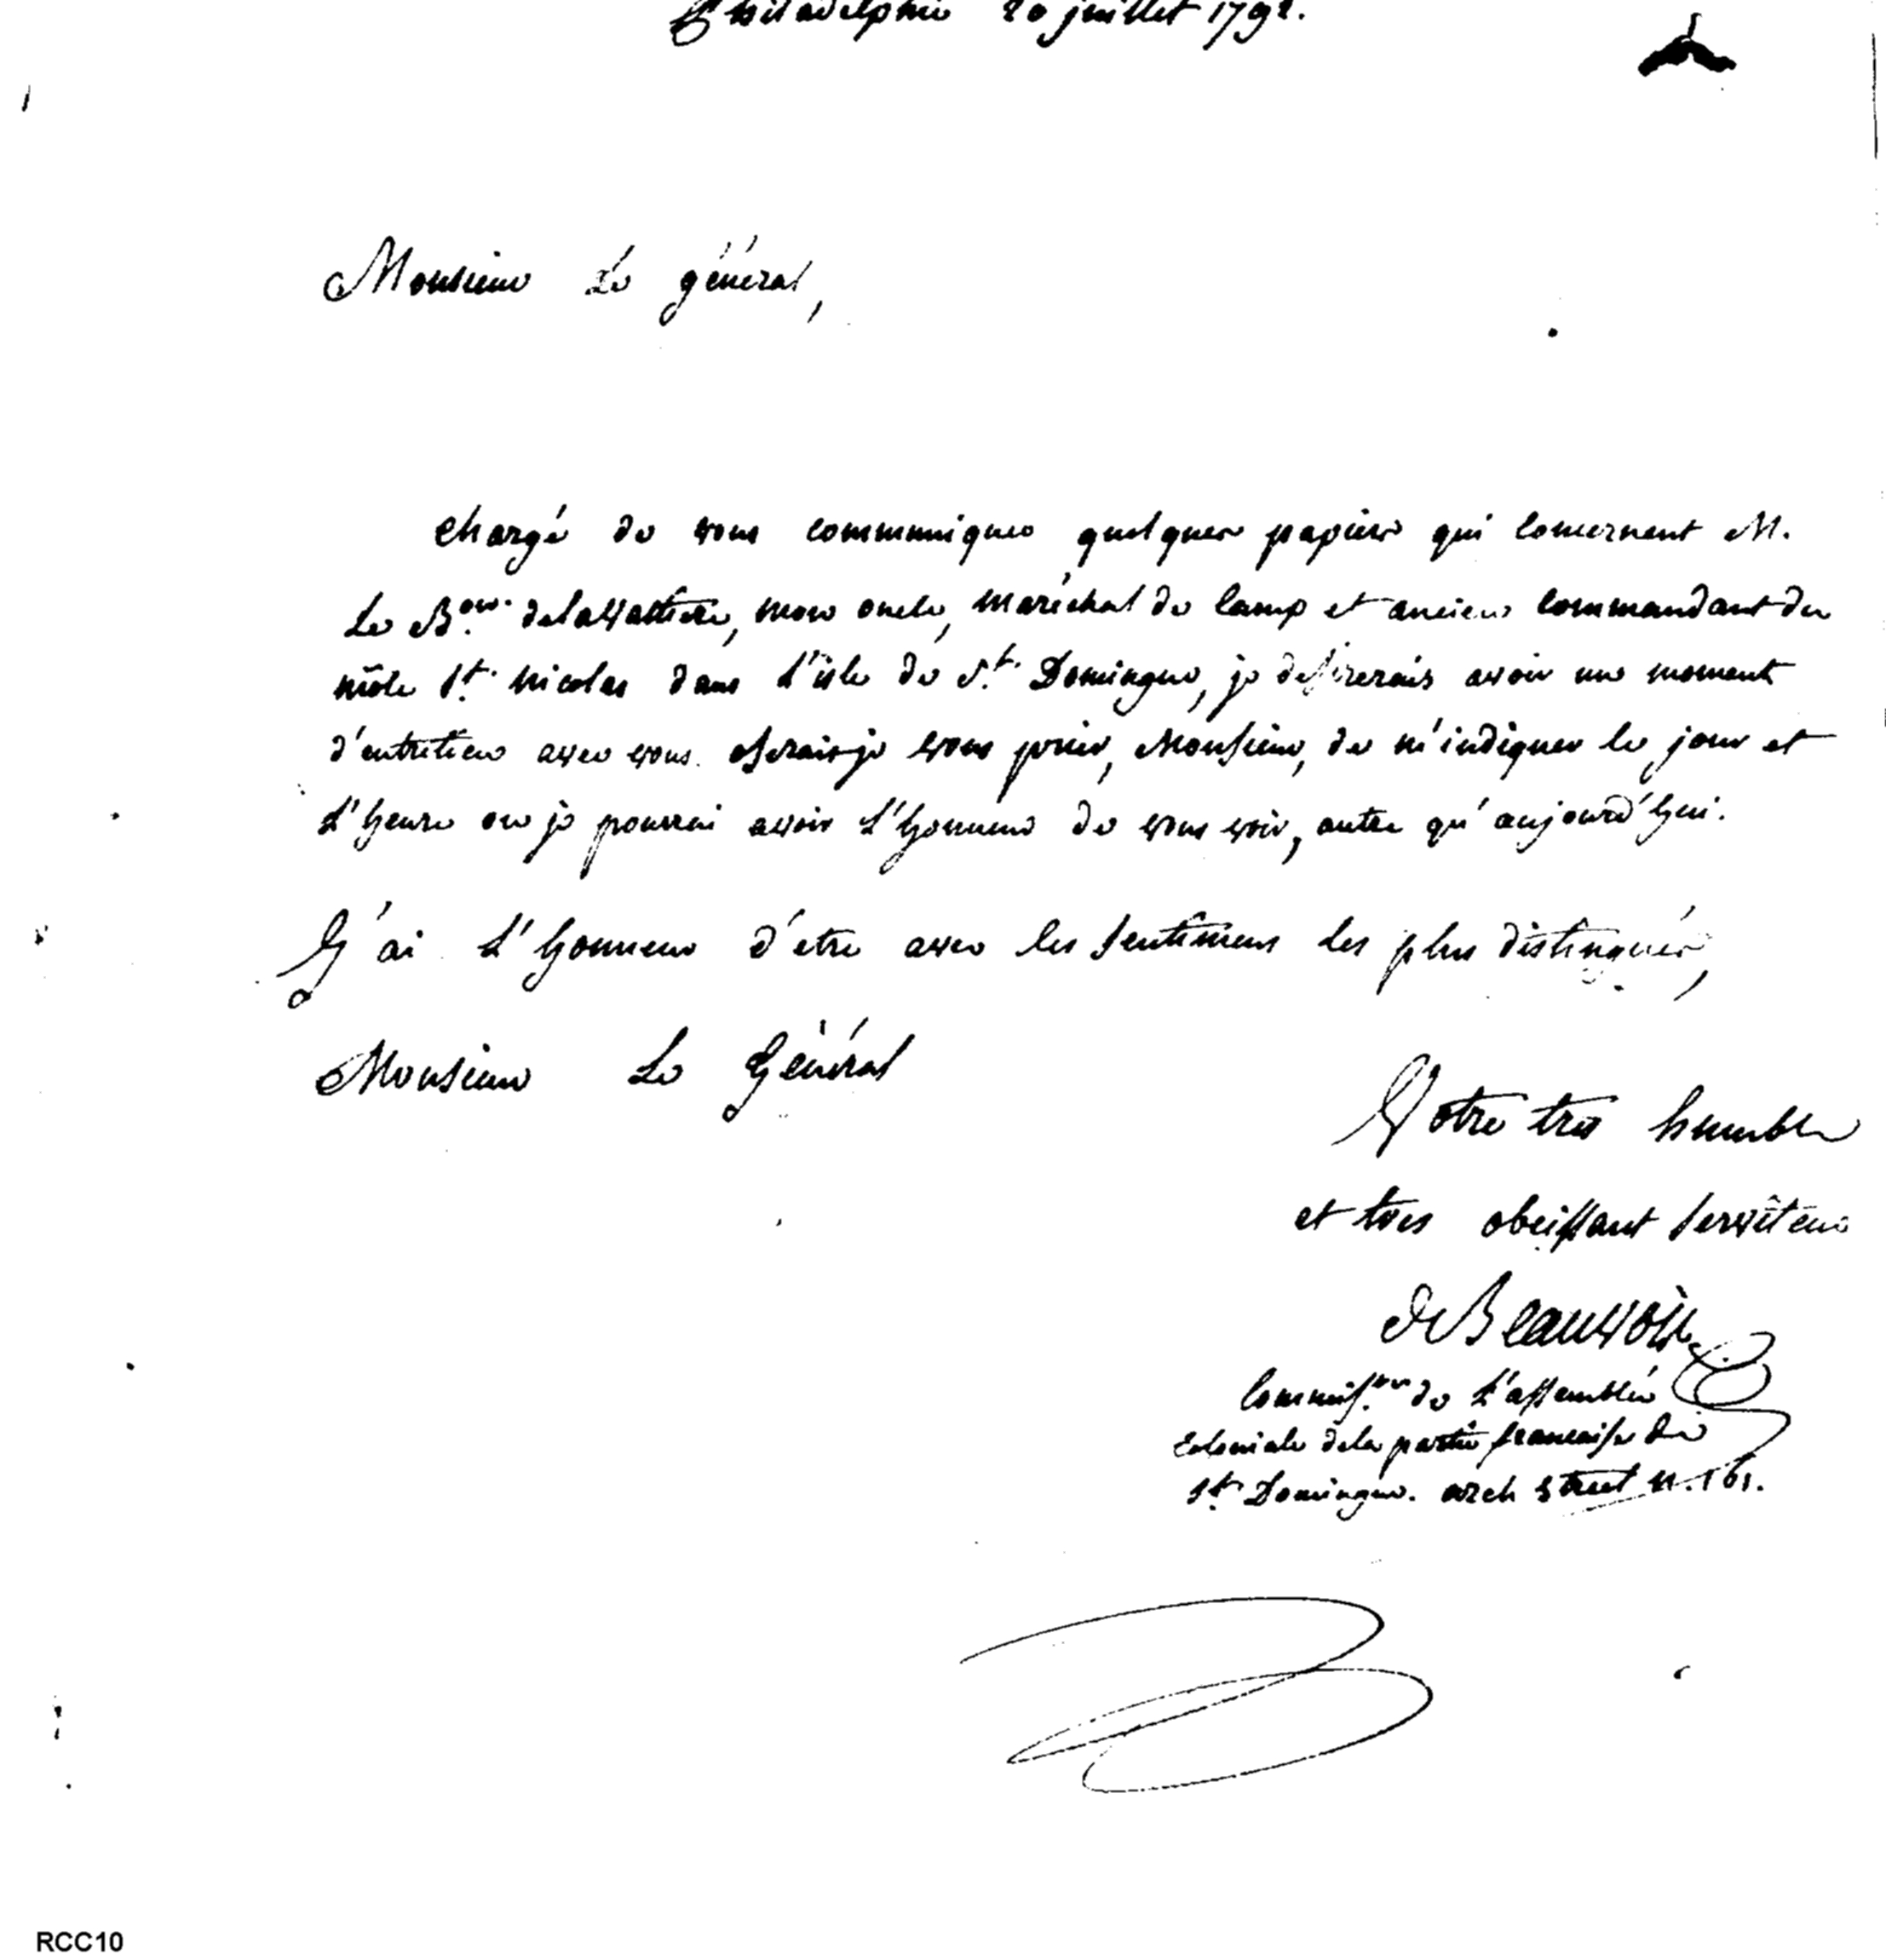 Philadelphie 20 juillet 1792.
Monsieur Le général,
chargé de vous communiquer quelques papiers qui concernent M.
Le B.on de lavaltiere, mon oncle, maréchal de Camp et ancien commandant du
môle St. nicolas dans l'isle de St. Domingue, je desirerais avoir un moment
d'entretien avec vous. oserais je vous prier, Monsieur, de m'indiquer le jour et
l'heure ou je pourrai avoir l'honneur de vous voir, autre qu'aujourd'hui.
J'ai l'honneur d'etre avec les sentimens les plus distingués,
Monsieur Le Général
Votre tres humble
et tres obeissant serviteur
de Beauvois
Commiss.re de l'assemblée
coloniale dela partie francaise de
St. Domingue. arch street n.
RCC10